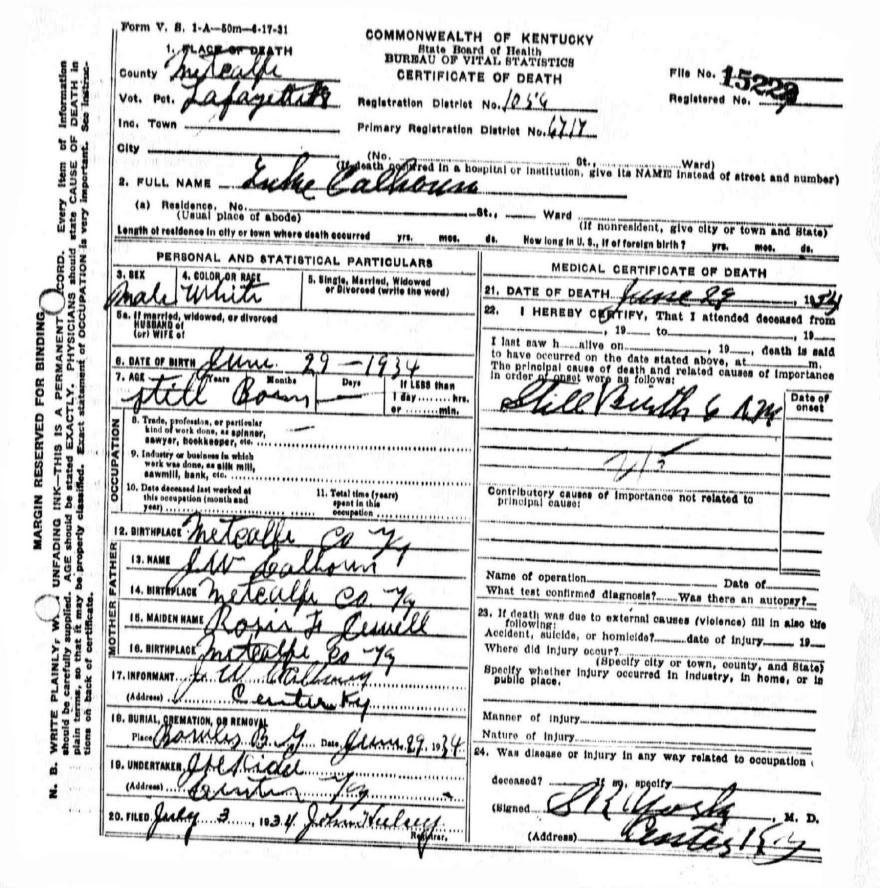 Form V. S. 1-A—50m—4-17-31
COMMONWEALTH OF KENTUCKY
State Board of Health
BUREAU OF VITAL STATISTICS
CERTIFICATE OF DEATH
1. PLACE OF DEATH
County Metcalfe
File No. 15229
Vot. Pct. Lafayette
Registration District No. 1056
Registered No.
Inc. Town
Primary Registration District No. 6717
City
(No. St., Ward)
(If death occurred in a hospital or institution, give its NAME instead of street and number)
2. FULL NAME Luke Calhoun
(a) Residence. No. St., Ward
(Usual place of abode)
(If nonresident, give city or town and State)
Length of residence in city or town where death occurred yrs. mos. ds. How long in U. S., if of foreign birth? yrs. mos. ds.
PERSONAL AND STATISTICAL PARTICULARS
3. SEX
Male
4. COLOR OR RACE
White
5. Single, Married, Widowed
or Divorced (write the word)
5a. If married, widowed, or divorced
HUSBAND of
(or) WIFE of
6. DATE OF BIRTH June 29—1934
7. AGE Years Months Days If LESS than
1 day hrs.
or min.
Still Born —
OCCUPATION
8. Trade, profession, or particular
kind of work done, as spinner,
sawyer, bookkeeper, etc. —
9. Industry or business in which
work was done, as silk mill,
sawmill, bank, etc.
10. Date deceased last worked at
this occupation (month and
year)
11. Total time (years)
spent in this
occupation
12. BIRTHPLACE Metcalfe Co Ky
FATHER
13. NAME J W Calhoun
14. BIRTHPLACE Metcalfe Co. Ky
MOTHER
15. MAIDEN NAME Rosie F Jewell
16. BIRTHPLACE Metcalfe Co Ky
17. INFORMANT J. W. Calhoun
(Address) Center Ky
18. BURIAL, CREMATION, OR REMOVAL
Place Bowles B. G Date June 29, 1934
19. UNDERTAKER
(Address) Center Ky
20. FILED July 3, 1934 John Hulsey
Registrar.
MEDICAL CERTIFICATE OF DEATH
21. DATE OF DEATH June 29, 1934
22. I HEREBY CERTIFY, That I attended deceased from
, 19 to , 19
I last saw h alive on , 19 , death is said
to have occurred on the date stated above, at m.
The principal cause of death and related causes of importance
in order of onset were as follows:
Date of
onset
Still Birth 6 A.M
Contributory causes of importance not related to
principal cause:
Name of operation Date of
What test confirmed diagnosis? Was there an autopsy?
23. If death was due to external causes (violence) fill in also the
following:
Accident, suicide, or homicide? date of injury 19
Where did injury occur?
(Specify city or town, county, and State)
Specify whether injury occurred in industry, in home, or in
public place.
Manner of injury
Nature of injury
24. Was disease or injury in any way related to occupation
deceased? If so, specify
(Signed , M. D.
(Address) Center Ky
MARGIN RESERVED FOR BINDING
N. B. WRITE PLAINLY, W UNFADING INK—THIS IS A PERMANENT CORD. Every item of information
should be carefully supplied. AGE should be stated EXACTLY. PHYSICIANS should state CAUSE OF DEATH in
plain terms, so that it may be properly classified. Exact statement of OCCUPATION is very important. See instruc-
tions on back of certificate.